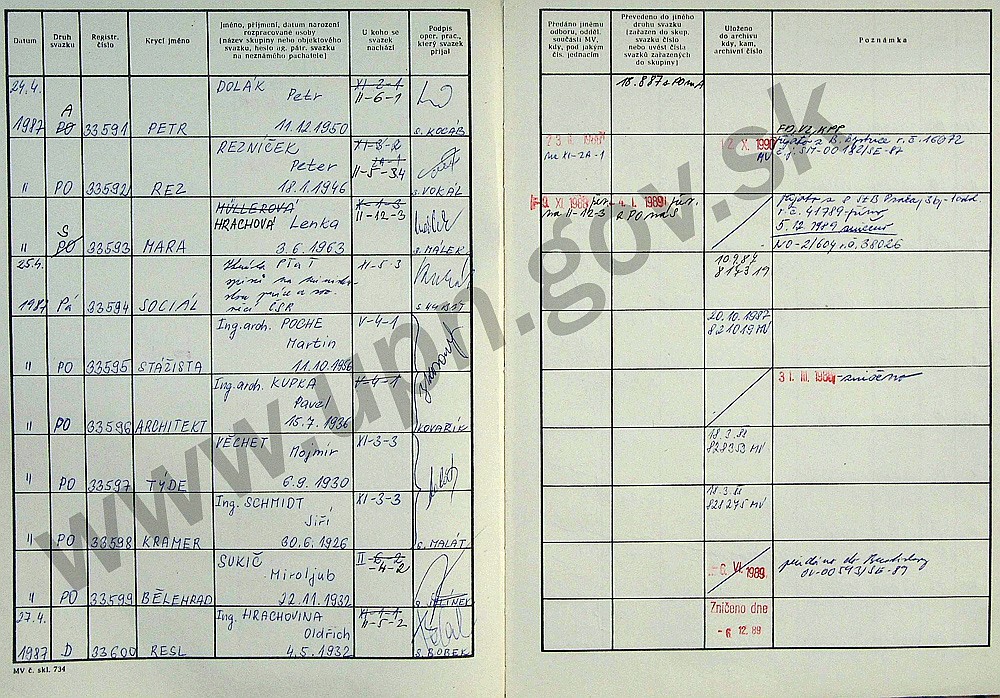 Datum
Druh svazku
Registr. číslo
Krycí jméno
Jméno, příjmení, datum narození rozpracované osoby (název skupiny nebo objektového svazku, heslo ag. pátr. svazku na neznámého pachatele)
U koho se svazek nachází
Podpis oper. prac., který svazek přijal
Předáno jinému odboru, odděl. součásti MV, kdy, pod jakým čís. jednacím
Převedeno do jiného druhu svazku (zařazen do skup. svazku číslo nebo uvést čísla svazků zařazených do skupiny)
Uloženo do archivu kdy, kam, archivní číslo
Poznámka
24.4. 1987 A PO 33591 PETR DOLÁK Petr 11.12.1950 XI-2-1 II-6-1 s. KOCÁB
18.887
FO, VZ, KPP
" PO 33592 REZ REZNÍČEK Peter 18.1.1946 XI-3-2 II-5-34 s. VOKÁL
na XI-2A-1
2. X. 1990 MV
r.č. 16072
" S PO 33593 MARA MÜLLEROVÁ HRACHOVÁ Lenka 3.6.1963 XI-1-3 II-12-3 s. MÁLEK
9. XI 1988
na II-12-3
4. I. 1989
z PO na S
r.č. 41789
5.12.1989
NO-21604 r.č. 38026
25.4. 1987 Pá 33594 SOCIÁL ČSR XI-5-3
10.9.87
817319
" PO 33595 STÁŽISTA Ing.arch. POCHE Martin 11.10.1956 V-4-1
20.10.1987
821019 MV
" PO 33596 ARCHITEKT Ing.arch. KUPKA Pavel 15.7.1936 V-4-1 KOVAŘÍK
31. III. 1988 zničeno
" PO 33597 TÝDE VĚCHET Mojmír 6.9.1930 XI-3-3
18.3.88
828353 MV
" PO 33598 KRAMER Ing. SCHMIDT Jiří 30.6.1926 XI-3-3 s. MALÁT
18.3.88
828275 MV
" PO 33599 BĚLEHRAD SUKIČ Miroljub 22.11.1932 II-6-2 -4-2 s. JELÍNEK
-6. VI. 1989
předáno do Bratislavy
OV-00593/SE-89
27.4. 1987 D 33600 RESL Ing. HRACHOVINA Oldřich 4.5.1932 XI-1-1 II-5-2 s. BOREK
Zničeno dne
-6. 12. 89
MV č. skl. 734
www.upn.gov.sk